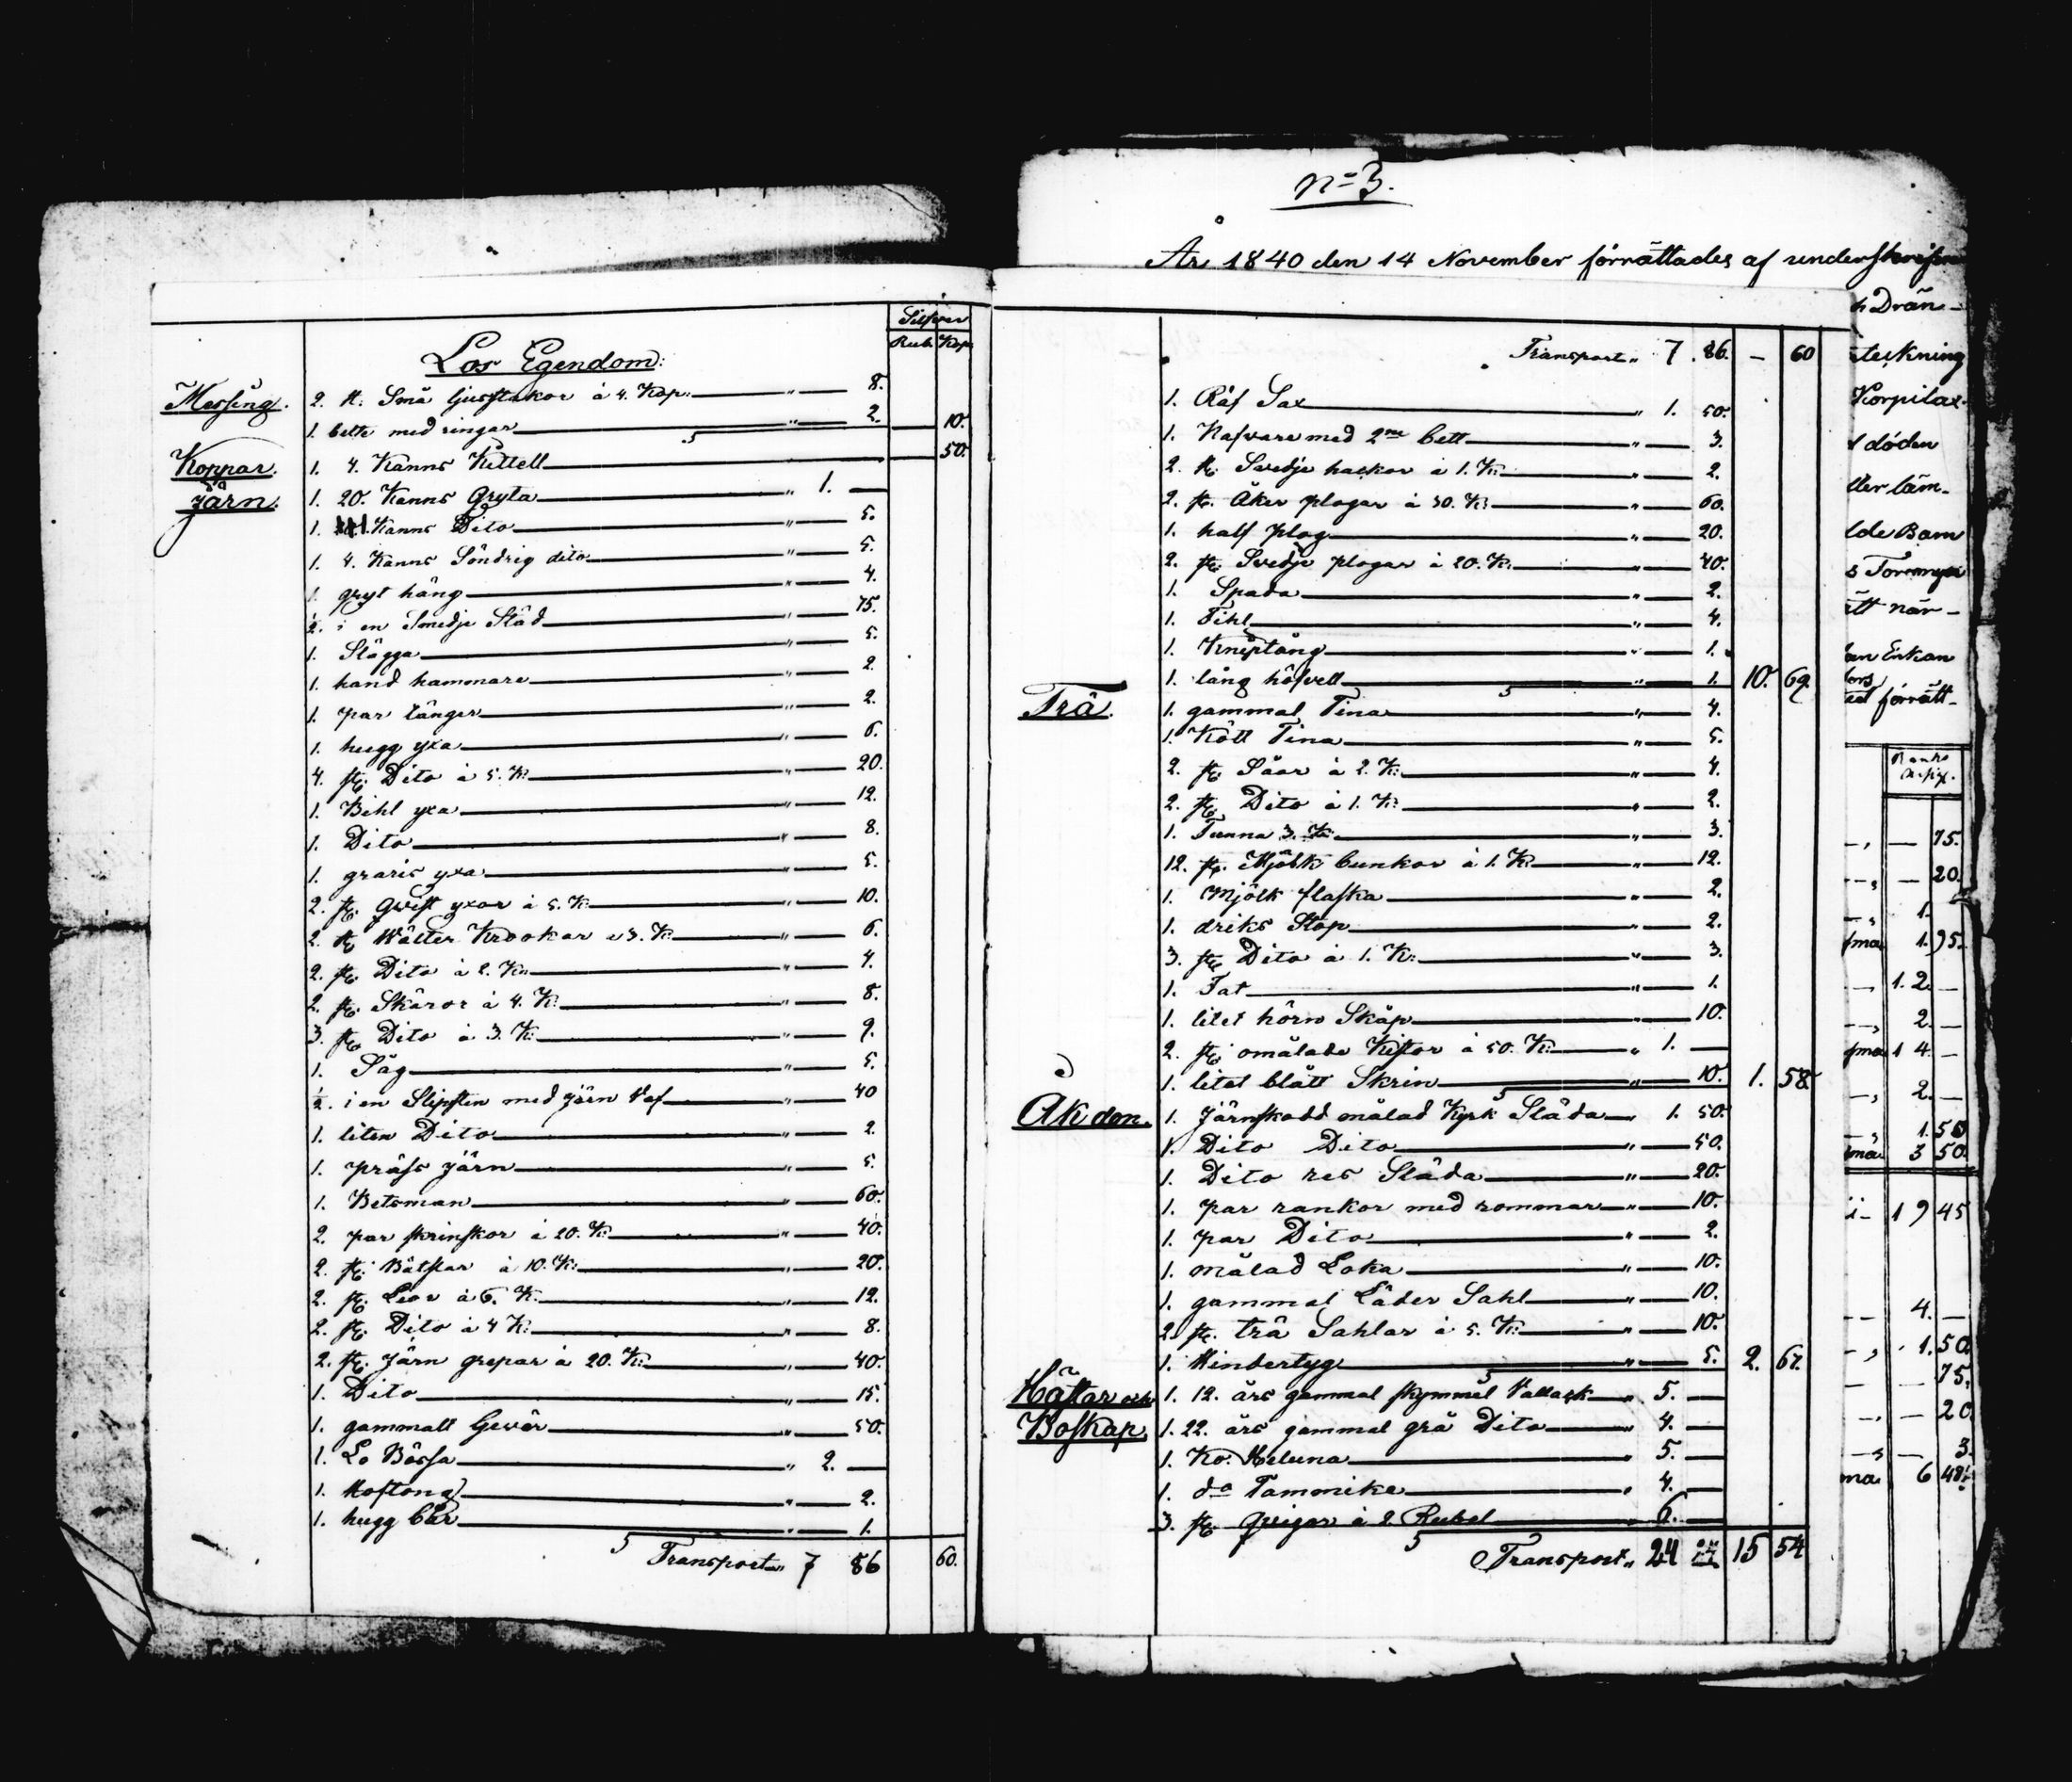 Silfver
Rub. Kop.
Lös Egendom:
Messing. 2. st. Små ljusstakor à 4. Kop: " — 8.
1. bette med ringar " — 2. — 10.
Koppar. 1. 4. Kanns Kittell — 50.
Järn. 1. 20. Kanns Gryta " 1. —
1. Kanns Dito " — 5.
1. 4. Kanns Söndrig dito " — 5.
1. gryt häng " — 4.
1/2. i en Smedje Städ " — 75.
1. Slägga " — 5.
1. hand hammare " — 2.
1. par tänger " — 2.
1. hugg yxa " — 6.
4. st. Dito à 5. K: " — 20.
1. Bihl yxa " — 12.
1. Dito " — 8.
1. yxa " — 5.
2. st. Qvist yxor à 5. K " — 10.
2. st Wälter Krookar à 3. K " — 6.
2. st. Dito à 2. K: " — 4.
2. st. Skäror à 4. K: " — 8.
3. st. Dito à 3. K: " — 9.
1. Såg " — 5.
1/2. i en Slipsten med järn Vef " — 40
1. liten Dito " — 2.
1. präss järn " — 5.
1. Betsman " — 60.
2. par skrinskor à 20. K: " — 40.
2. st. à 10. K: " — 20.
2. st. Lior à 6. K. " — 12.
2. st. Dito à 4 K: " — 8.
2. st. Järn grepar à 20. K: " — 40.
1. Dito " — 15.
1. gammalt Gevär " — 50.
1. Lo Bössa " 2. —
1. " — 2.
1. hugg " — 1.
Transport " 7 86 60.
n=3.
År 1840 den 14 November förrättades af
Transport " 7. 86. — 60
1. Räf Sax " 1. 50.
1. Nafvare med 2ne bett " — 3.
2. st. Svedje hackor à 1. K: " — 2.
2. st. Åker plogar à 30. K: " — 60.
1. half plog " — 20.
2. st. Svedje plogar à 20. K: " — 40.
1. Spada " — 2.
1. Fihl " — 4.
1. Kniptång " — 1.
1. lång höfvell " — 1. 10. 69.
Trä. 1. gammal Tina " — 4.
1. Kött Tina " — 5.
2. st. Såar à 2. K: " — 4.
2. st. Dito à 1. K: " — 2.
1. Tunna 3. K: " — 3.
12. st. Mjölk bunkor à 1. K: " — 12.
1. Mjölk flaska " — 2.
1. driks Stop " — 2.
3. st. Dito à 1. K: " — 3.
1. Fat " — 1.
1. litet hörn Skåp " — 10.
2. st. omålade Kistor à 50. K: " 1. —
1. litet blått Skrin " — 10. 1. 58.
Åkdon. 1. Järnskodd målad Kyrk Släda " 1. 50.
1. Dito Dito " — 50.
1. Dito res Släda " — 20.
1. par rankor med rommar " — 10.
1. par Dito " — 2.
1. målad Loka " — 10.
1. gammal Läder Sahl " — 10.
2. st. trä Sahlar à 5. K: " — 10.
1. Hindertyg " — 5. 2. 67.
Hästar och 1. 12. års gammal skymmel Vallack " 5. —
Boskap. 1. 22. års gammal grå Dito " 4. —
1. Ko. Heluna " 5. —
1. do Tammike " 4. —
3. st. Qvigor à 2. Rubel " 6. —
Transport " 24 15 54
Drän-
teckning
Korpilax
döden
ller läm-
lde Barn
ätt när-
Enkan
förrätt-
— 75.
— 20.
1.
1. 95.
1. 2. —
2. —
1 4. —
2. —
1. 50
3 50.
1 9 45
4. —
1. 50.
75.
— 20
3.
6